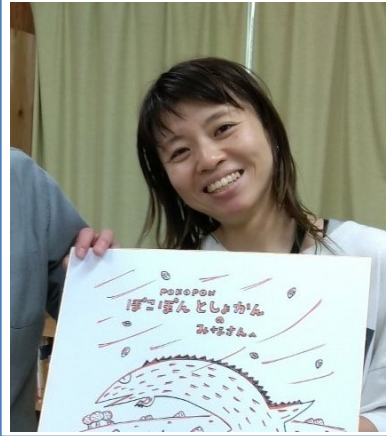 POKOPON
ぽこぽん としょかん
の
みなさん。